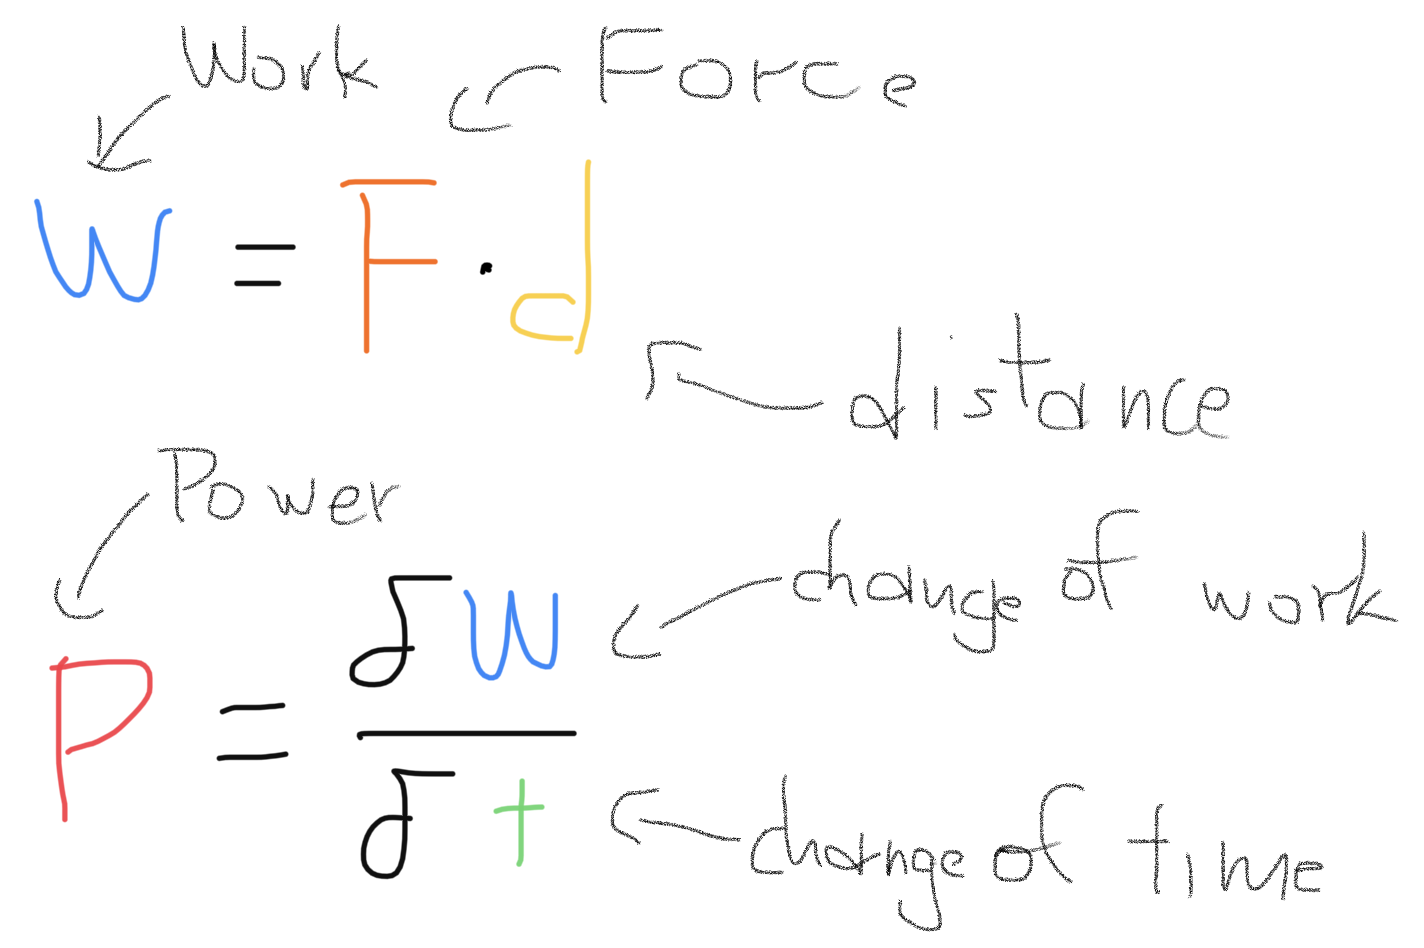 Work
Force
W = F · d
distance
Power
change of work
P = δW / δt
change of time